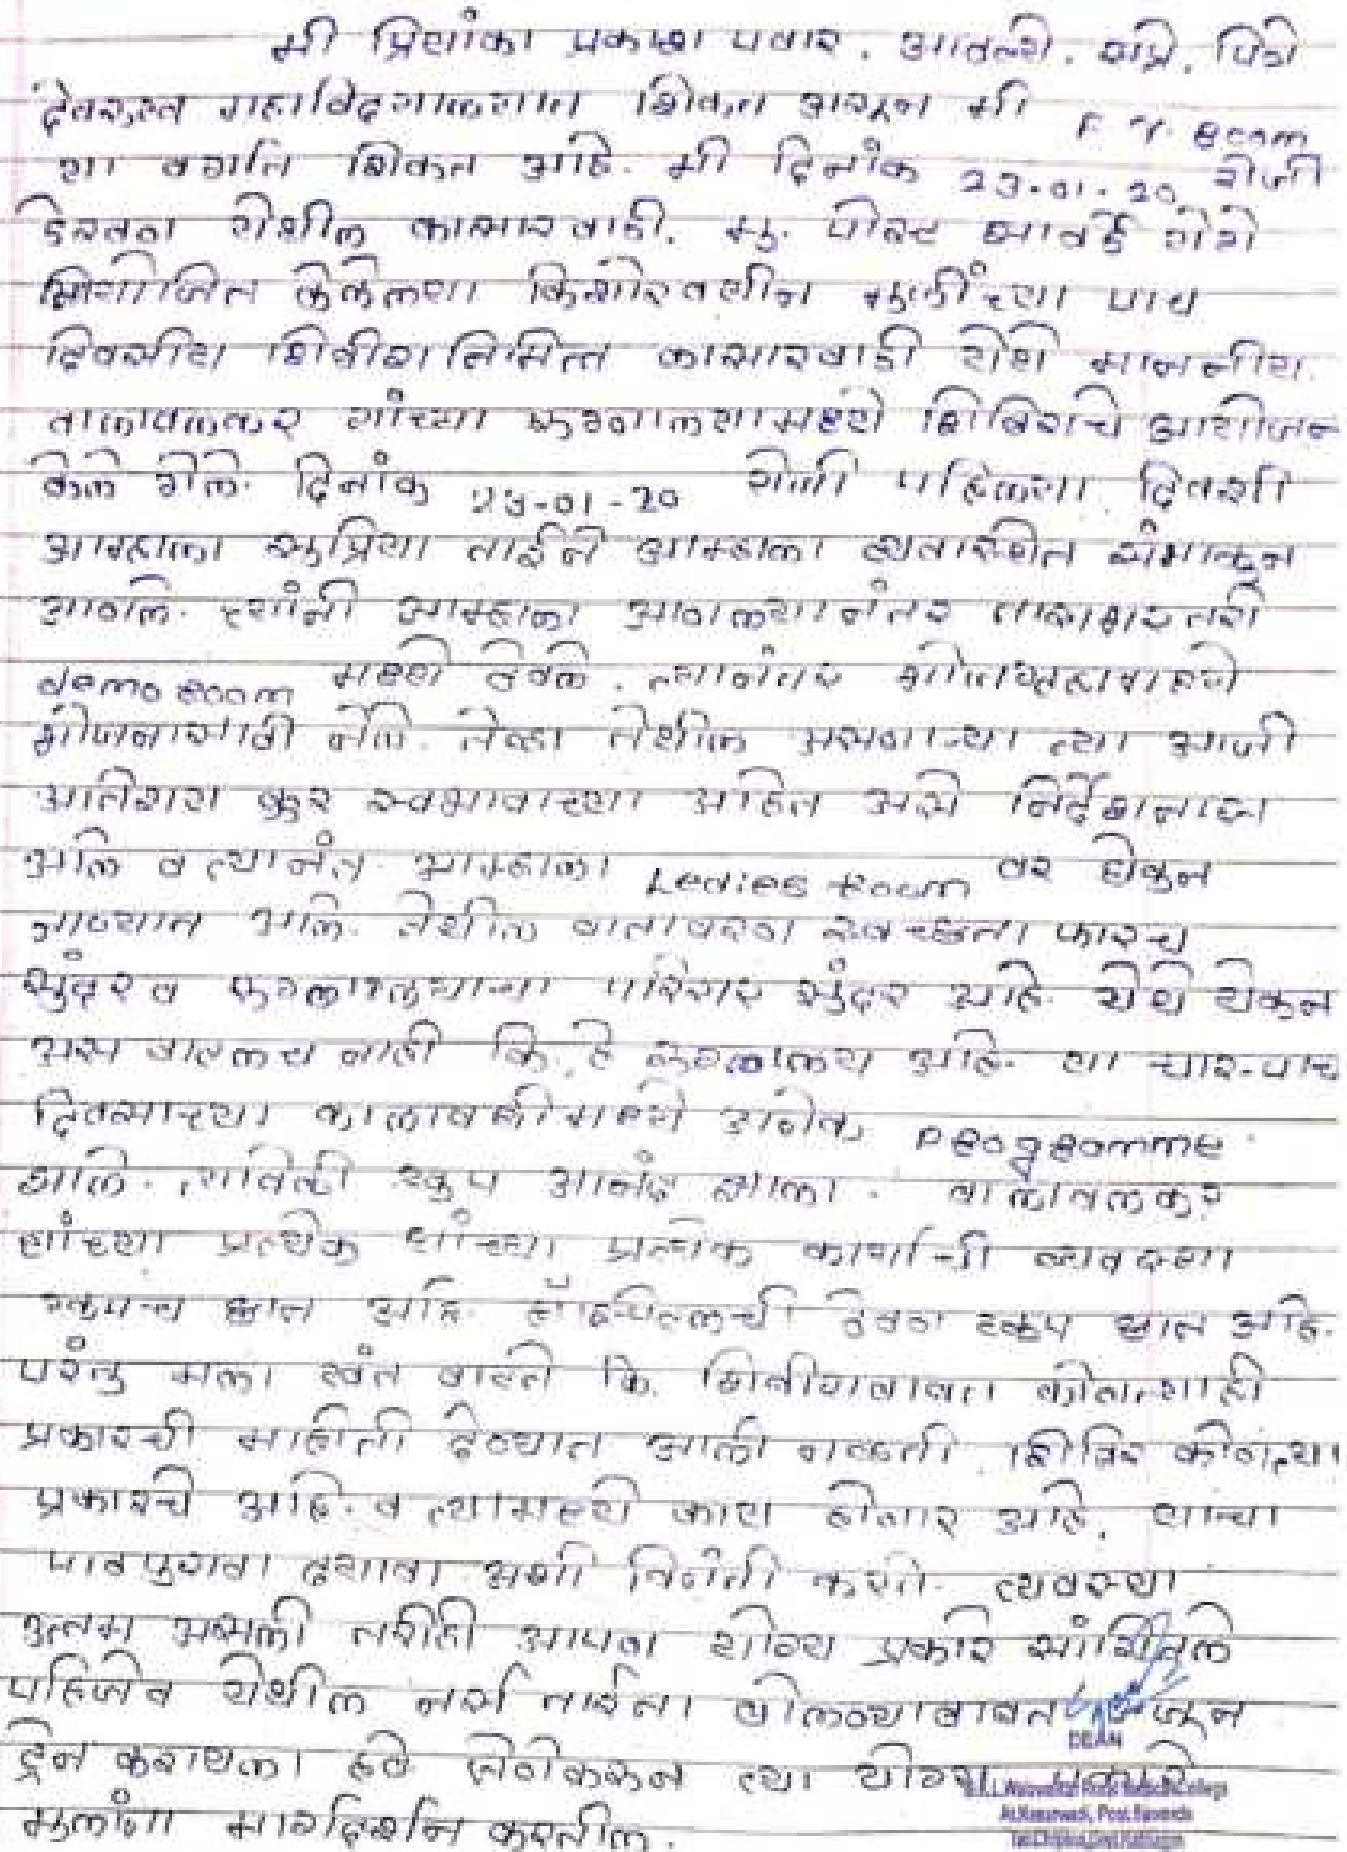 मी प्रियांका प्रकाश पवार. आवल्ये. सप्रे. पित्रे
देवरुख महाविद्यालयात शिकत असून मी F. Y. Bcom
या वर्गात शिकत आहे. मी दिनांक 23-01-20 रोजी
डेरवण येथील कासारवाडी. मु. पोस्ट सावर्डे येथे
नियोजित केलेल्या किशोरवयीन मुलींच्या पाच
दिवसीय शिबीरानिमित्त कासारवाडी येथे माननीय.
वालावलकर यांच्या रुग्णालयामध्ये शिबिराचे आयोजन
केले गेले. दिनांक 23-01-20 रोजी पहिल्या दिवशी
आम्हाला सुप्रिया ताईने आम्हाला व्यवास्थित संभाळून
आणले. त्यांनी आम्हाला आणल्यानंतर
demo room मध्ये ठेवले. त्यानंतर
भोजनासाठी नेले. तेव्हा तेथील असणाऱ्या त्या आजी
अतिशय क्रुर स्वभावाच्या आहेत असे निर्देशनास
आले व त्यानंत. आम्हाला Ledies Room वर घेऊन
जाण्यात आले. तेथील वातावरण स्वच्छता फारच
सुंदर व रुग्णालयाचा परिसर सुंदर आहे. येथे येऊन
अस वाटलच नाही कि, हे रुग्णालय आहे. या चार-पाच
दिवसाच्या कालावधीमध्ये अनेक Programme.
झाले. त्यावेळी खुप आनंद झाला. वालावलकर
यांच्या प्रत्येक यांच्या प्रत्येक कार्याची व्यवस्था
खुपच छान आहे. हॉस्पिटलची ठेवण खुप छान आहे.
परंतु मला खंत वाटते कि. शिबीराबाबत कोणत्याही
प्रकारची माहीती देण्यात आली नव्हती. शिबिर कोणत्या
प्रकारचे आहे. व त्यामध्ये काय होणार आहे. याचा
पाठपुरावा द्यावा अशी विनंती करते. व्यवस्था
उत्तम असली तरीही आपण योग्य प्रकारे सांगितले
पहिजेव येथील नर्स ताईंना बोलण्याबाबत अजून
ट्रेन करायला हवे जेणेकरून त्या योग्य प्रकारे
मुलांना मार्गदर्शन करतील.
DEAN